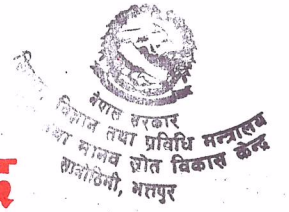 नेपाल सरकार
विज्ञान तथा प्रविधि मन्त्रालय
मानव स्रोत विकास केन्द्र
सानोठिमी, भक्तपुर